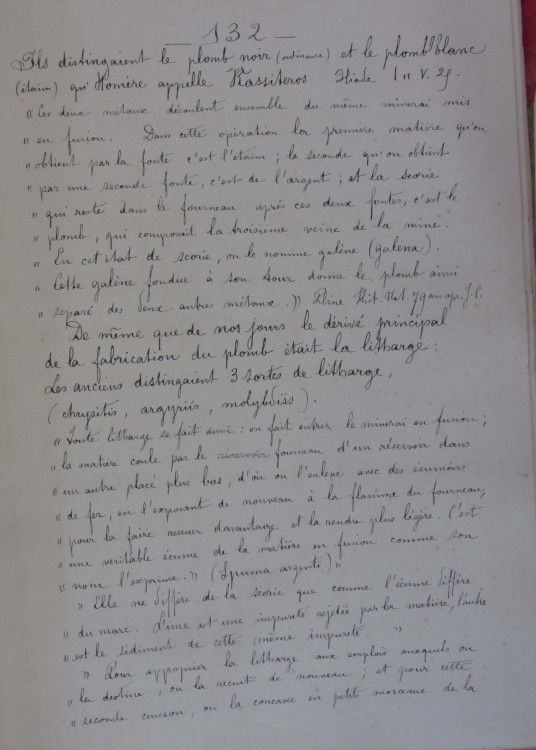 — 132 —
Ils distinguaient le plomb noir (ordinaire) et le plomb blanc
(étain) qu'Homère appelle Kassiteros Iliade V. 25.
« Les deux métaux découlent ensemble du même minerai mis
« en fusion. Dans cette opération la première matière qu'on
« obtient par la fonte c'est l'étain ; la seconde qu'on obtient
« par une seconde fonte, c'est de l'argent ; et la scorie
« qui reste dans le fourneau après ces deux fontes, c'est le
« plomb, qui composait la troisième veine de la mine.
« En cet état de scorie, on le nomme galène (galèna).
« Cette galène fondue à son tour donne le plomb ainsi
« séparé des deux autres métaux. » Pline Hist. Nat. ap. J.C.
De même que de nos jours le dérisé principal
de la fabrication du plomb était la litharge :
Les anciens distinguaient 3 sortes de litharge,
(chrysitis, argyriis, molybdiss).
« Toute litharge se fait ainsi : on fait entrer le minerai en fusion ;
« la matière coule par le réservoir fourneau d'un réservoir dans
« un autre placé plus bas, d'où on l'enlève avec des écumoirs
« de fer, en l'exposant de nouveau à la flamme du fourneau,
« pour la faire ressuer davantage et la rendre plus légère. C'est
« une veritable écume de la matière en fusion comme son
« nom l'exprime. » (Spuma argenti) "
» Elle ne diffère de la scorie que comme l'écume diffère
« du marc. L'une est une impureté rejetée par la matière, l'autre
« est le sédiment de cette même impureté. »
» Pour approprier la litharge aux emplois auxquels on
« la destine, on la recuit de nouveau ; et pour cette
« seconde cuisson, on la concasse en petits morceaux de la